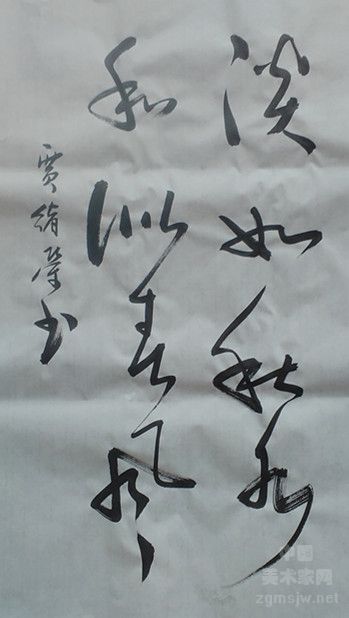 淡如秋水
和似春风
贾绪荣书
中国
美术家网
zgmsjw.net